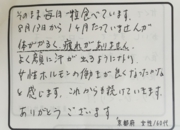 そのまま毎日一粒食べています。
8月13日から14月たっていませんが
体がかるく、疲れがありません。
よく顔に汗が出るようになり、
女性ホルモンの働きが良くなったかな
と感じます。これからも続けていきます。
ありがとうございます。
京都府 女性/60代